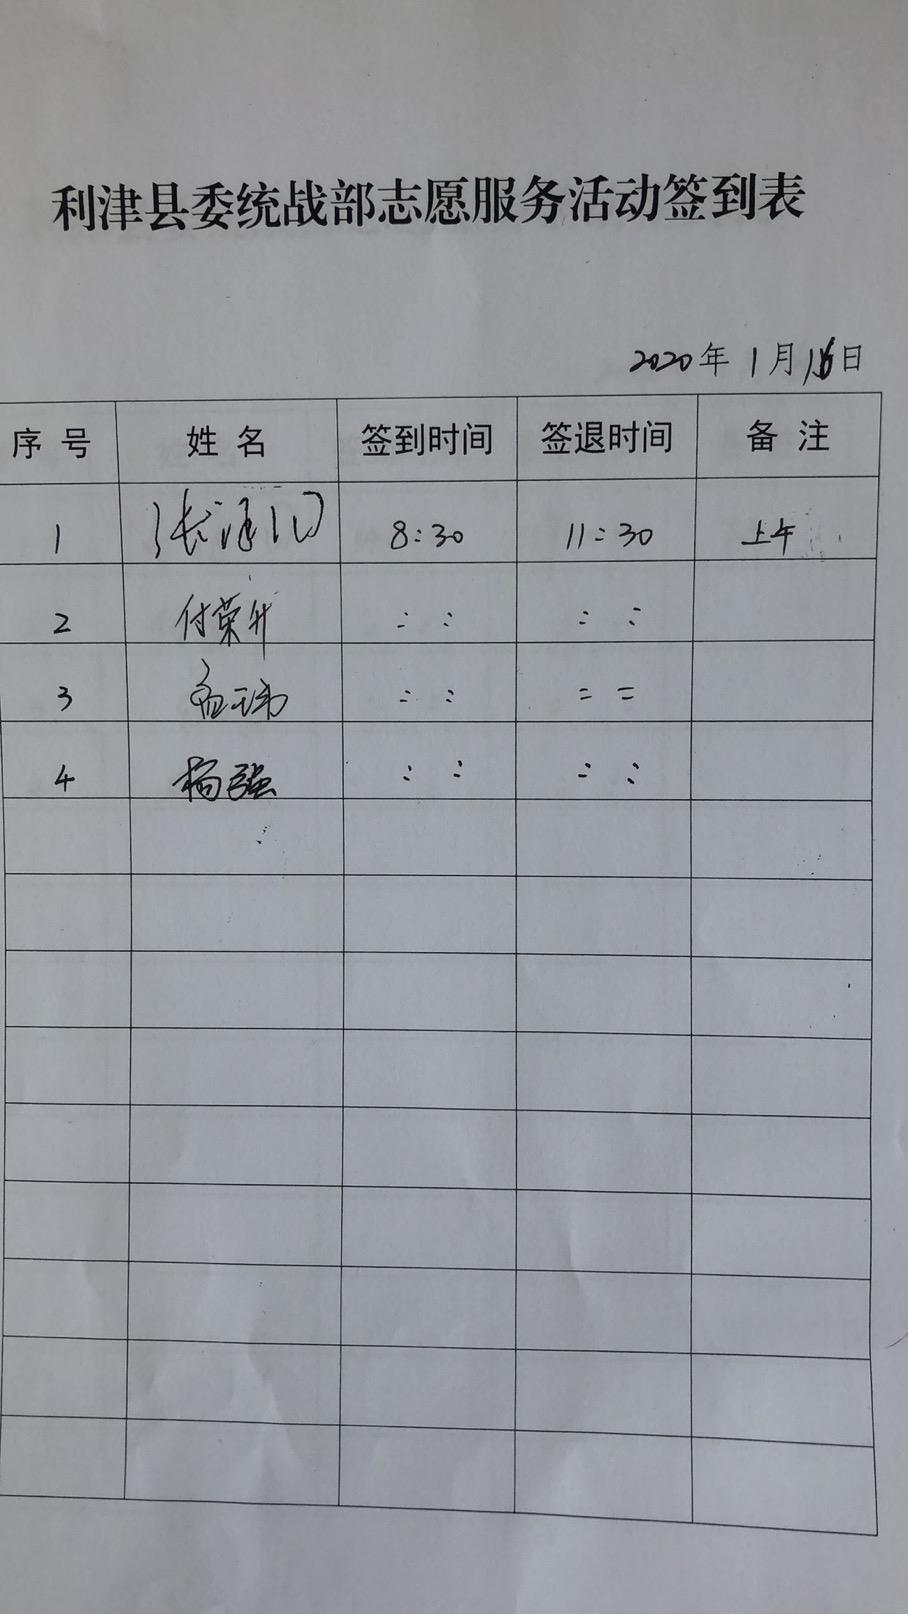 利津县委统战部志愿服务活动签到表
2020年1月16日
序号 姓名 签到时间 签退时间 备注
1 8:30 11:30 上午
2 付荣升 : : : :
3 孟玮 : : = =
4 杨强 : : : :